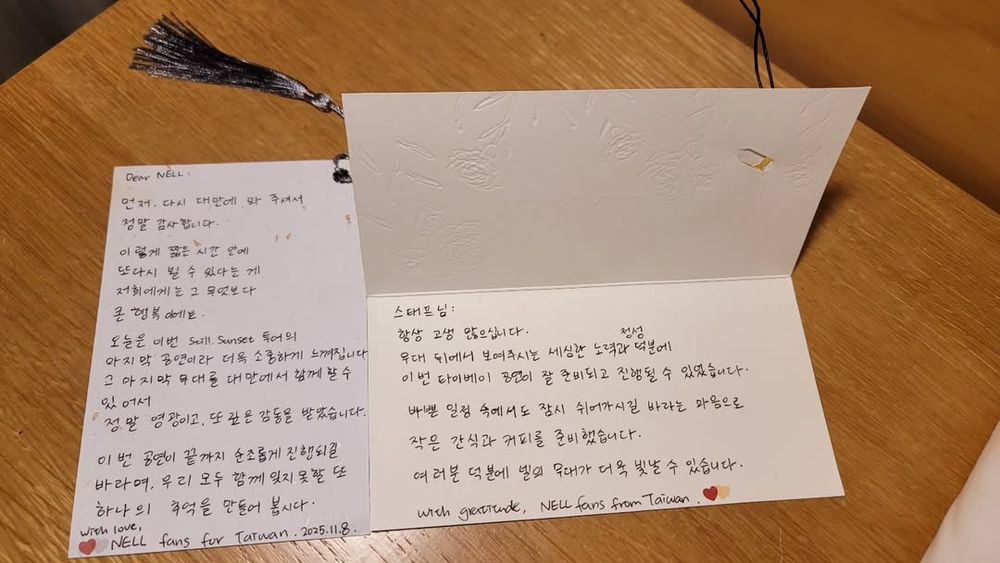 Dear NELL :
먼저, 다시 대만에 와 주셔서
정말 감사합니다.
이렇게 짧은 시간 안에
또다시 뵐 수 있다는 게
저희에게는 그 무엇보다
큰 행복이에요.
오늘은 이번 Still Sunset 투어의
마지막 공연이라 더욱 소중하게 느껴집니다
그 마지막 무대를 대만에서 함께 할 수
있어서
정말 영광이고, 또 깊은 감동을 받았습니다.
이번 공연이 끝까지 순조롭게 진행되길
바라며, 우리 모두 함께 잊지 못할 또
하나의 추억을 만들어 봅시다.
With love,
NELL fans for Taiwan. 2025.11.8.
스태프님:
항상 고생 많으십니다.
정성
무대 뒤에서 보여주시는 세심한 노력과 덕분에
이번 타이베이 공연이 잘 준비되고 진행될 수 있었습니다.
바쁠 일정 속에서도 잠시 쉬어가시길 바라는 마음으로
작은 간식과 커피를 준비했습니다.
여러분 덕분에 넬의 무대가 더욱 빛날 수 있습니다.
with gratitude, NELL fans from Taiwan.